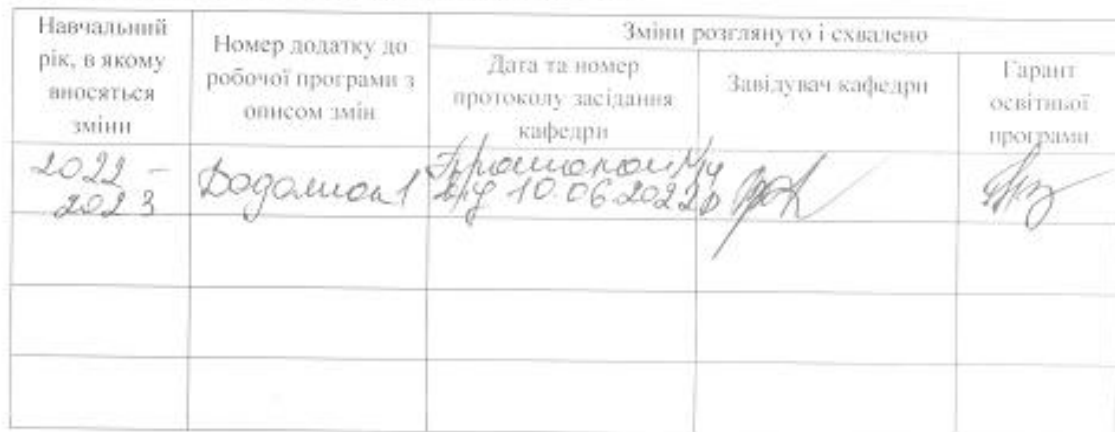 Навчальний рік, в якому вносяться зміни
Номер додатку до робочої програми з описом змін
Зміни розглянуто і схвалено
Дата та номер протоколу засідання кафедри
Завідувач кафедри
Гарант освітньої програми
2022 –
2023
Додаток 1
Протокол №14
від 10.06.2022р